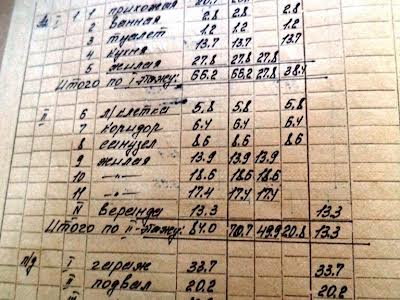 I 1 1 прихожая 20.7
2 ванная 2.8 2.8 2.8
3 туалет 1.2 1.2 1.2
4 кухня 13.7 13.7 13.7
5 жилая 27.8 27.8 27.8
Итого по I-этажу: 66.2 66.2 27.8 38.4
II 6 л/клетка 5.8 5.8 5.8
7 коридор 6.4 6.4 6.4
8 санузел 8.6 8.6 8.6
9 жилая 13.9 13.9 13.9
10 -"- 18.6 18.6 18.6
11 -"- 17.4 17.4 17.4
веранда 13.3 13.3
Итого по II-этажу: 84.0 70.7 49.9 20.8 13.3
п/д I гараж 33.7 33.7
II подвал 20.2 20.2
III